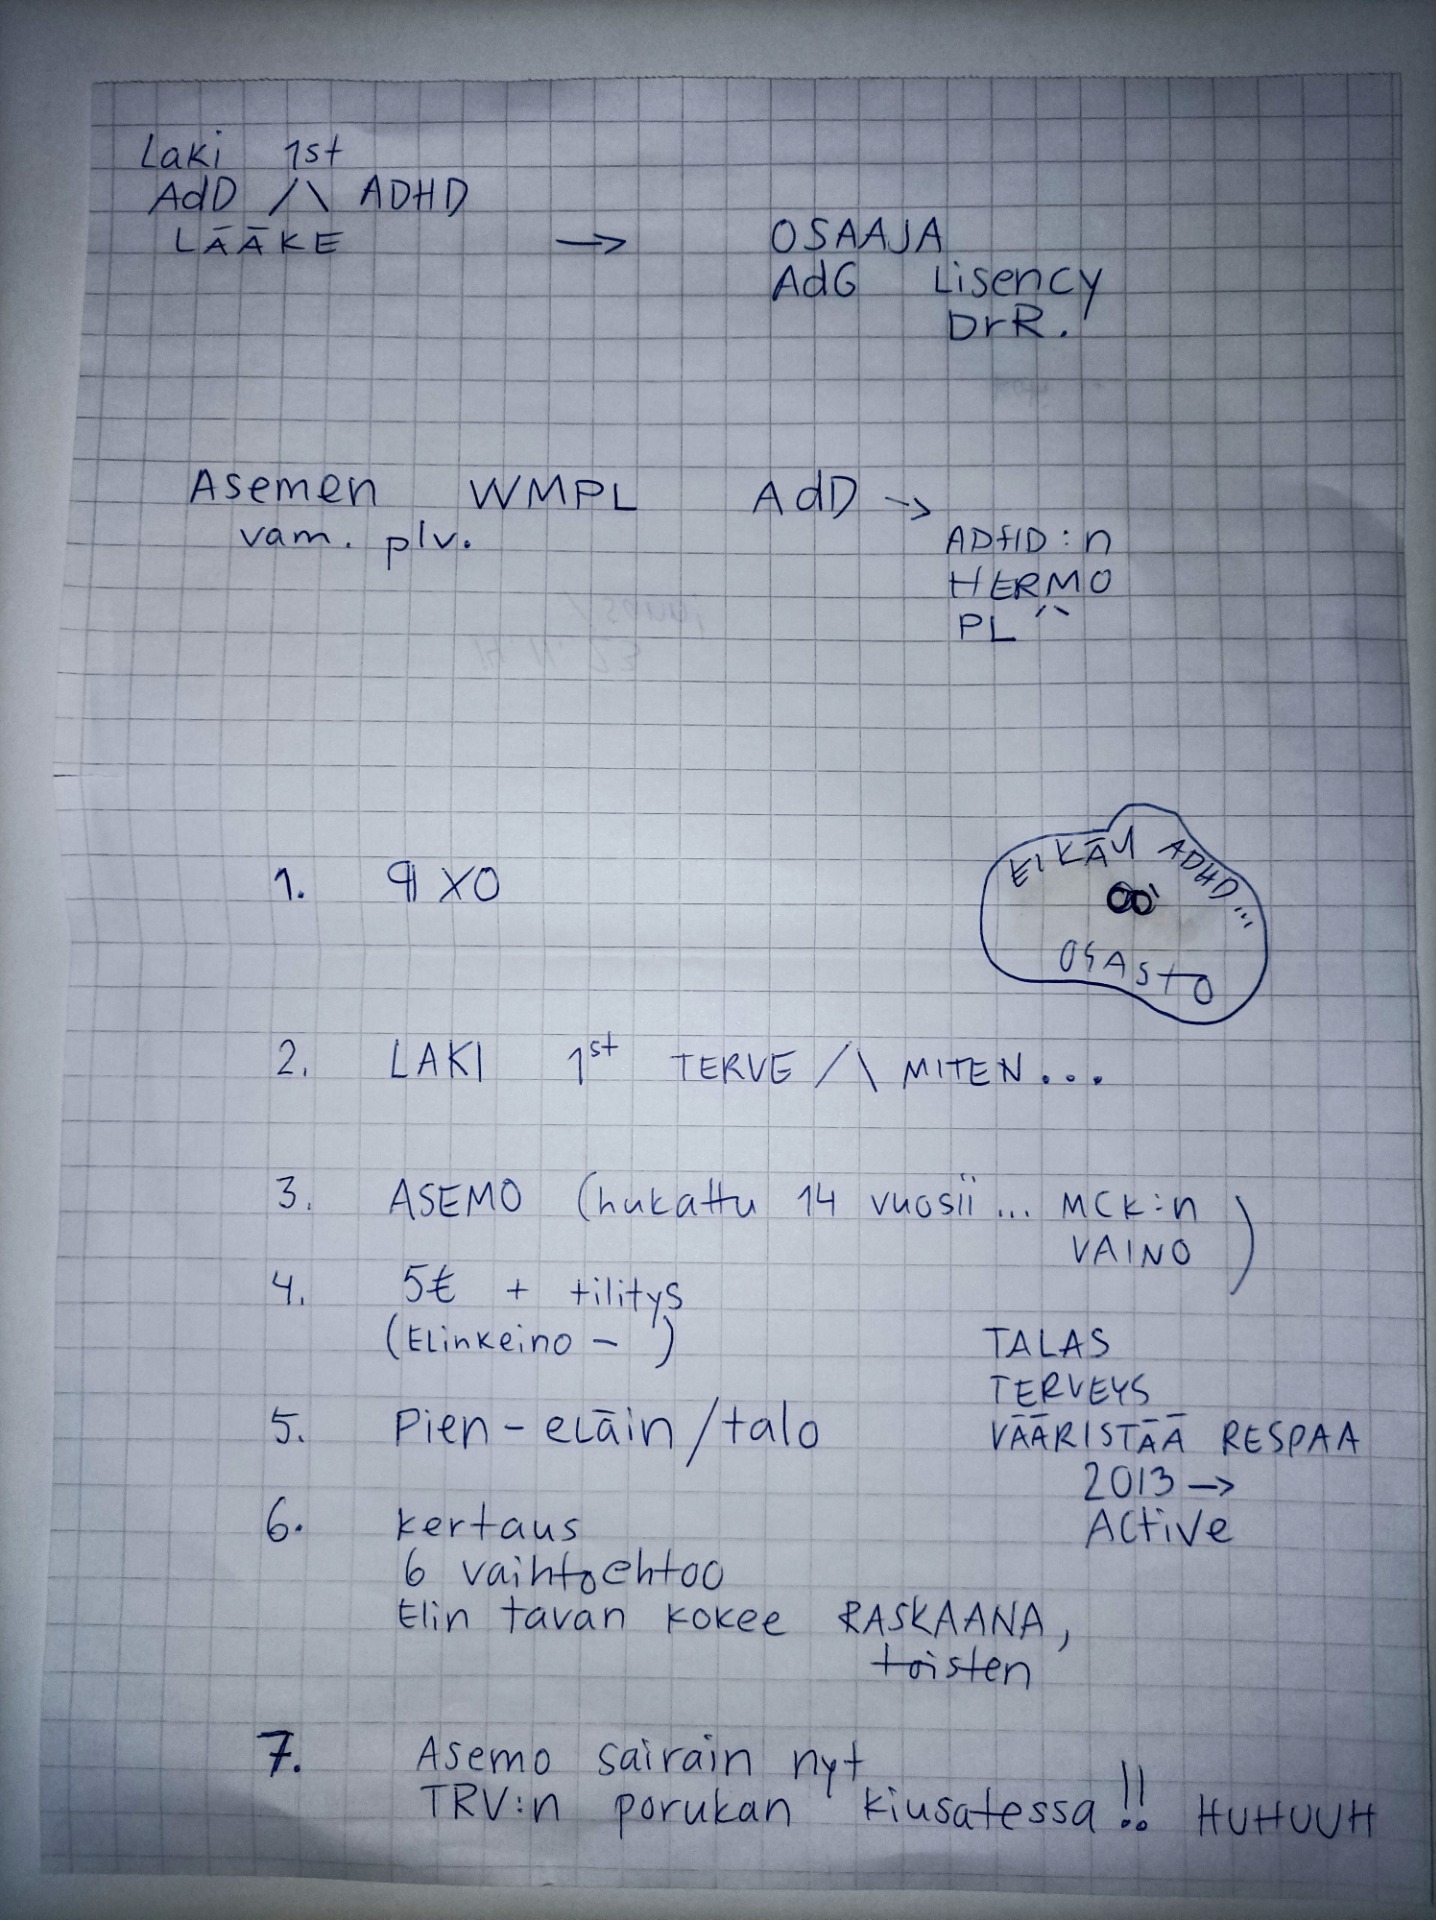 Laki 1st
AdD /\ ADHD
LĀĀKE → OSAAJA
AdG Lisency
DrR.
Asemen WMPL AdD →
vam. plv.
ADHD:n
HERMO
PL
1. XO
EI KĀY ADHD...
OSASTO
2. LAKI 1st TERVE /\ MITEN...
3. ASEMO (hukattu 14 vuosii... MCK:n
VAINO)
4. 5€ + tilitys
(Elinkeino - )
TALAS
TERVEYS
VĀĀRISTĀĀ RESPAA
2013 →
Active
5. Pien-elāin/talo
6. kertaus
6 vaihtoehtoo
Elin tavan kokee RASKAANA,
toisten
7. Asemo sairain nyt
TRV:n porukan kiusatessa!! HUHUUH